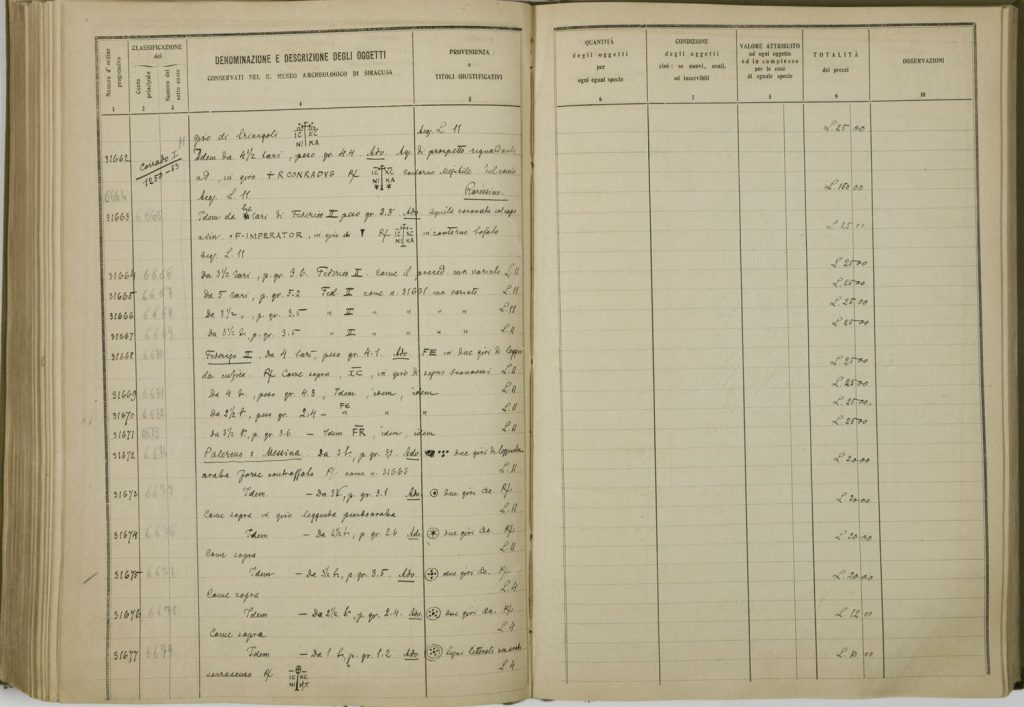 Numero d'ordine progressivo
CLASSIFICAZIONE
del
Conto principale
Numero del sotto conto
DENOMINAZIONE E DESCRIZIONE DEGLI OGGETTI
CONSERVATI NEL R. MUSEO ARCHEOLOGICO DI SIRACUSA
PROVENIENZA
e
TITOLI GIUSTIFICATIVI
1 2 3 4 5
giro di triangoli IC XC NI KA Acq. L. 11
31662 Corrado I 1250-53 Idem da 4 1/2 tari, peso gr. 4.4 Adv. Aq. di prospetto riguardante
ad. in giro + R CONRADVS R/ IC XC NI KA contorno
6664 Acq. L. 11 Rarissimo.
31663 6665 Idem da tre tari di Federico II peso gr. 3.3 Adv. Aquila coronata
a sin. • F • IMPERATOR, in giro di ▼ R/ IC XC NI KA in contorno
Acq. L. 11
31664 6666 Da 3 1/2 tari, p. gr. 3.6. Federico II come il preced. ma variato L. 11
31665 6667 Da 5 tari, p. gr. 5.2 Fed. II come n. 31661 ma variato L. 11
31666 6668 Da 3 1/2 ", p. gr. 3.5 " II " " " " L. 11
31667 6669 Da 3 1/2 t., p. gr. 3.5 " II " " " " L. 11
31668 6670 Federigo II. Da 4 tari, peso gr. 4.1. Adv. FE in due giri di leggen
da cufica. R/ Come sopra, XC, in giro di segni L. 11
31669 6671 Da 4 t., peso gr. 4.3, Idem, idem, idem L. 11
31670 6672 Da 2 1/2 t., peso gr. 2.4 – FE " " " L. 11
31671 6673 Da 3 1/2 t., p. gr. 3.6 – Idem FR, idem, idem L. 11
31672 6674 Palermo e Messina. Da 3 t., p. gr. 3.1 Adv. due giri di leggenda
araba forse contraffatta R/ come n. 31666 L. 11
31673 6675 Idem – Da 3 t., p. gr. 3.1 Adv. due giri &c. R/
Come sopra in giro leggenda pseudoaraba L. 11
31674 6676 Idem – Da 2 1/2 t., p. gr. 2.6 Adv. due giri &c. R/
Come sopra L. 11
31675 6677 Idem – Da 3 1/2 t., p. gr. 3.5. Adv. due giri &c. R/
Come sopra L. 4
31676 6678 Idem – Da 2 1/2 t., p. gr. 2.4. Adv. due giri &c. R/
Come sopra L. 4
31677 6679 Idem – Da 1 t., p. gr. 1.2 Adv.
R/ IC XC NI L. 4
QUANTITÀ
degli oggetti
per
ogni egual specie
CONDIZIONE
degli oggetti
cioè: se nuovi, usati,
od inservibili
VALORE ATTRIBUITO
ad ogni oggetto
ed in complesso
per le cose
di eguale specie
TOTALITÀ
dei prezzi
OSSERVAZIONI
6 7 8 9 10
L. 25 00
L. 150.00
L. 25.00
L. 25 00
L. 25 00
L. 25.00
L. 25 00
L. 25.00
L. 25 00
L. 25 00
L. 25 00
L. 20.00
L. 20.00
L. 20 00
L. 20 00
L. 12 00
L. 10 00